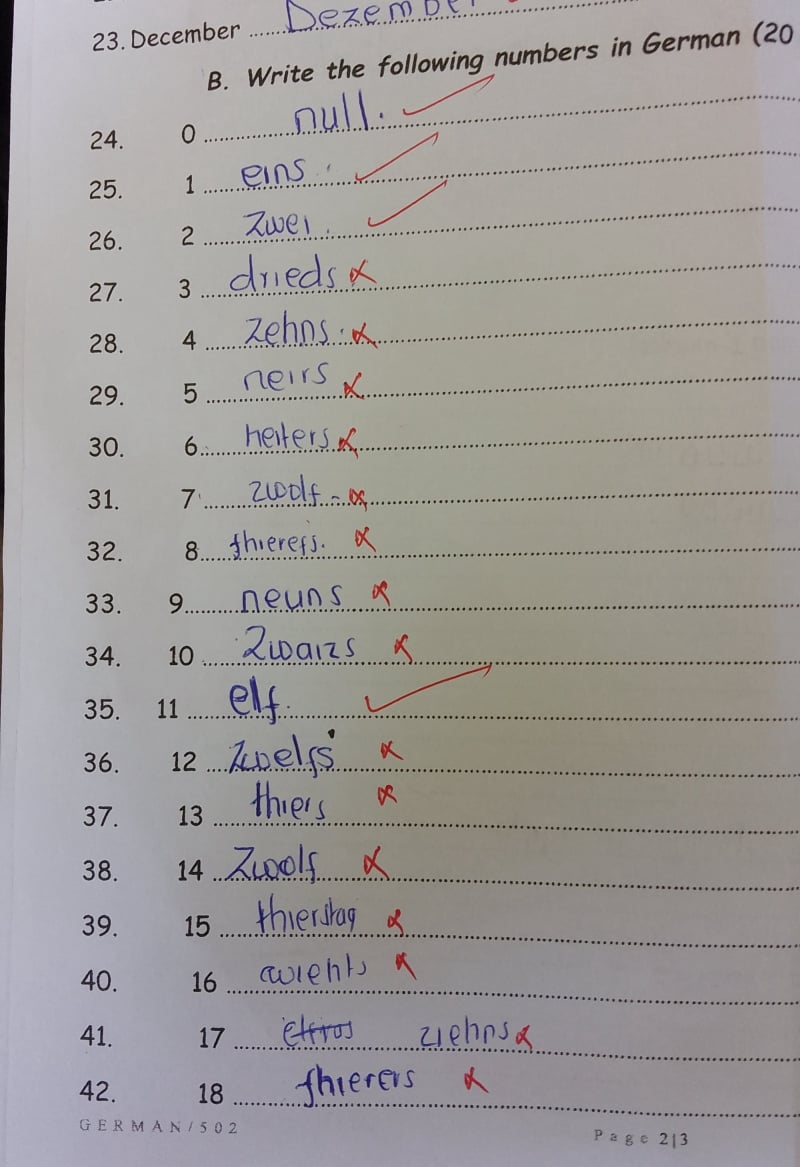 23. December Dezember
B. Write the following numbers in German (20
24. 0 null.
25. 1 eins.
26. 2 zwei
27. 3 drieds
28. 4 zehns.
29. 5 neirs
30. 6 heiters
31. 7 zwolf
32. 8 thierefs.
33. 9 neuns
34. 10 zwaizs
35. 11 elf.
36. 12 zwelfs
37. 13 thiers
38. 14 Zwolf
39. 15 thierstag
40. 16
41. 17 ziehns
42. 18 thierers
GERMAN/502
Page 2|3